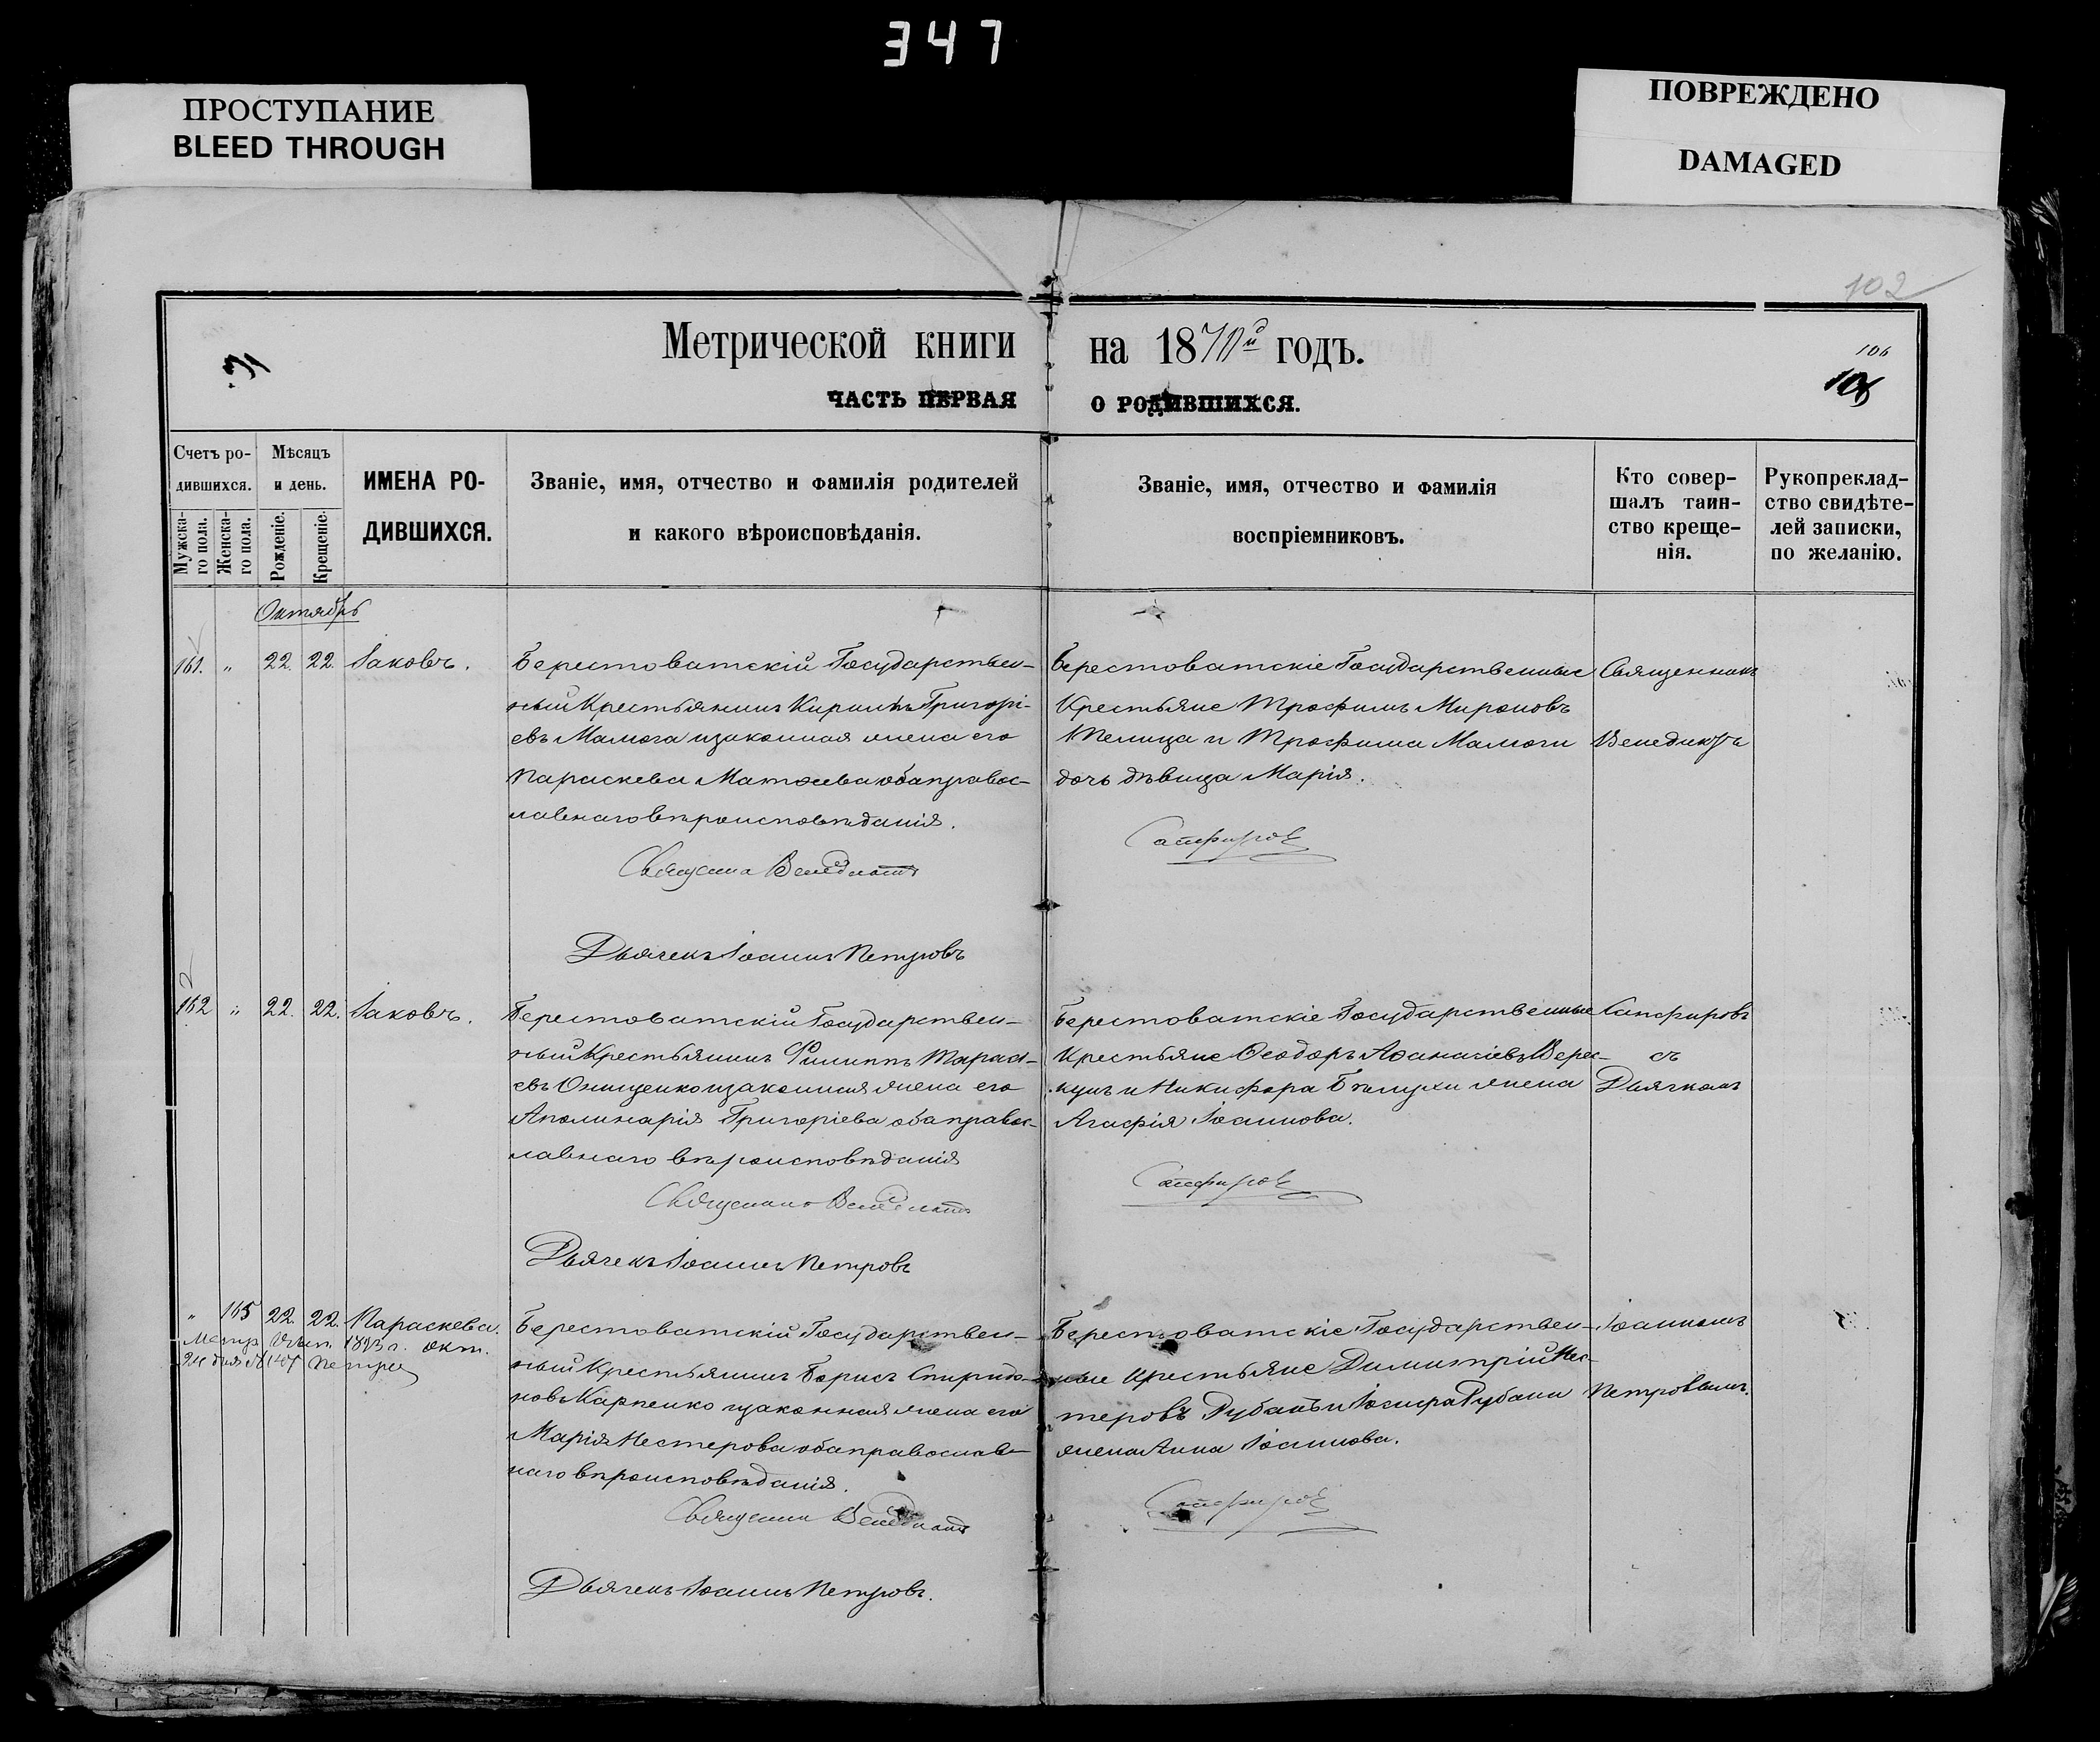 347
ПРОСТУПАНИЕ
BLEED THROUGH
ПОВРЕЖДЕНО
DAMAGED
102
Метрической книги на 1870й годъ.
106
ЧАСТЬ ПЕРВАЯ О РОДИВШИХСЯ.
Счетъ ро-
дившихся.
Мужска-
го пола.
Женска-
го пола.
Мѣсяцъ
и день.
Рожденіе.
Крещеніе.
ИМЕНА РО-
ДИВШИХСЯ.
Званіе, имя, отчество и фамилія родителей
и какого вѣроисповѣданія.
Званіе, имя, отчество и фамилія
воспріемниковъ.
Кто совер-
шалъ таин-
ство креще-
нія.
Рукопреклад-
ство свидѣте-
лей записки,
по желанію.
Октябрь
161. " 22. 22. Іаковъ.
Берестоватскій Государствен-
ный Крестьянинъ Кириллъ Григорі-
евъ Малюга изаконная жена его
Параскева Матѳеева оба правос-
лавнаго вѣроисповѣданія.
Священникъ Венедиктъ
Дьячекъ Іоаннъ Петровъ
Берестоватскіе Государственные
Крестьяне Трофимъ Мироновъ
Телица и Трофима Малюги
дочь дѣвица Марія.
Сапфировъ
Священникъ
Венедиктъ
162 " 22. 22. Іаковъ.
Берестоватскій Государствен-
ный Крестьянинъ Филиппъ Тарасі-
евъ Онищенко изаконная жена его
Аполинарія Григоріева оба правос-
лавнаго вѣроисповѣданія
Священникъ Венедиктъ
Дьячекъ Іоаннъ Петровъ
Берестоватскіе Государственные
Крестьяне Ѳеодоръ Аѳанасіевъ
и Никифора Бѣлухи жена
Агафія Іоаннова.
Сапфировъ
Сапфировъ
съ
Дьячкомъ
" 165 22. 22. Параскева.
1893 г. окт.
Берестоватскій Государствен-
ный Крестьянинъ Борисъ Спиридо-
новъ Карпенко изаконная жена его
Марія Нестерова оба православ-
наго вѣроисповѣданія.
Священникъ Венедиктъ
Дьячекъ Іоаннъ Петровъ.
Берестоватскіе Государствен-
ные Крестьяне Димитрій Нес-
теровъ Рубанъ и Іосифа Рубана
жена Анна Іоаннова.
Сапфировъ
Іоанномъ
Петровымъ.